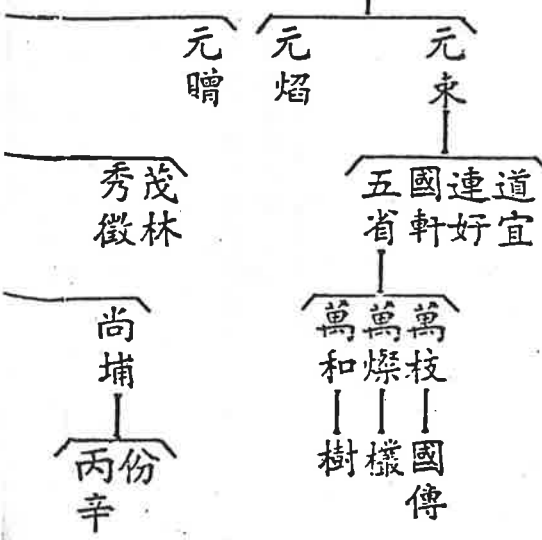 元束
元焰
元贈
道宜
連好
國軒
五省
茂林
秀徵
萬枝
萬燦
萬和
尚埔
國傳
樹
份
丙辛